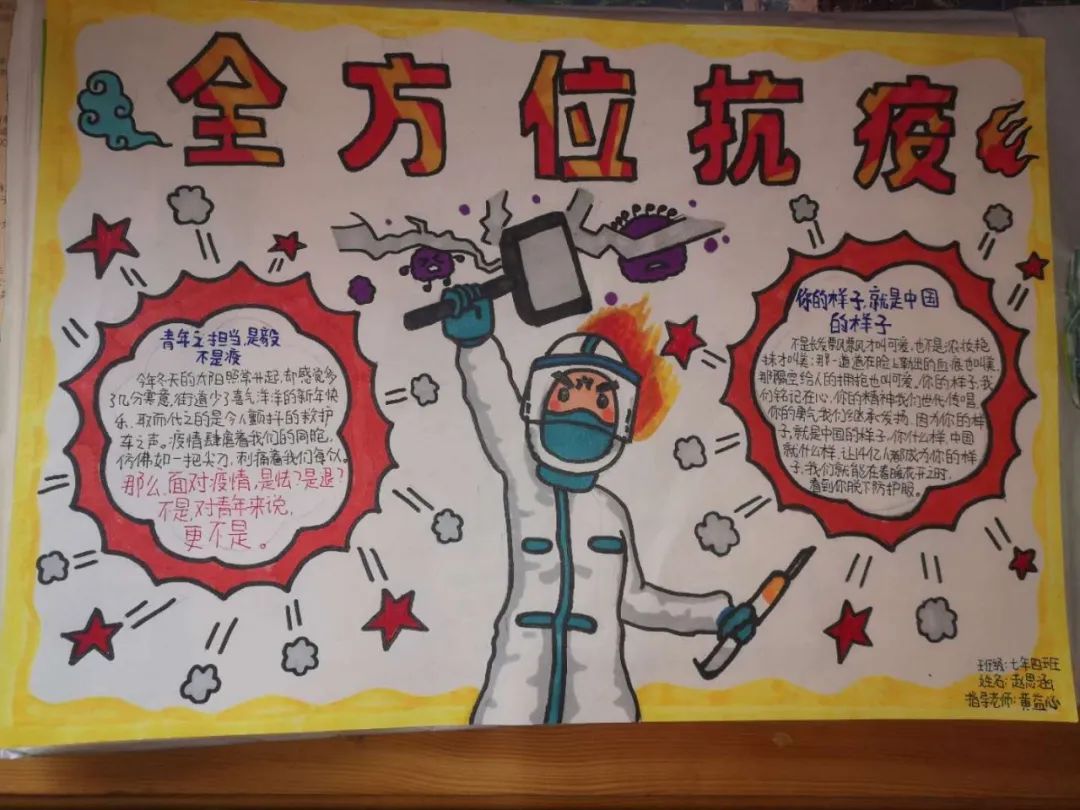 全方位抗疫
青年之担当,是毅
不是疫
今年冬天的太阳照常升起,却感觉多
了几分寒意,街道少了喜气洋洋的新年快
乐,取而代之的是令人颤抖的救护
车之声。疫情肆虐着我们的同胞,
仿佛如一把尖刀,刺痛着我们每个人。
那么,面对疫情,是怯?是退?
不是,对青年来说,
更不是。
你的样子,就是中国
的样子
不是长发飘飘才叫可爱,也不是浓妆艳
抹才叫美;那一道道在脸上勒出的血痕也叫美,
那隔空给人的拥抱也叫可爱。你的样子,我
们铭记在心,你的精神我们世代传唱,
你的勇气我们继承发扬。因为你的样
子,就是中国的样子,你什么样,中国
就什么样,让14亿人都成为你的样
子,我们就能在春暖花开之时,
看到你脱下防护服。
班级:七年四班
姓名:赵思涵
指导老师:黄益心